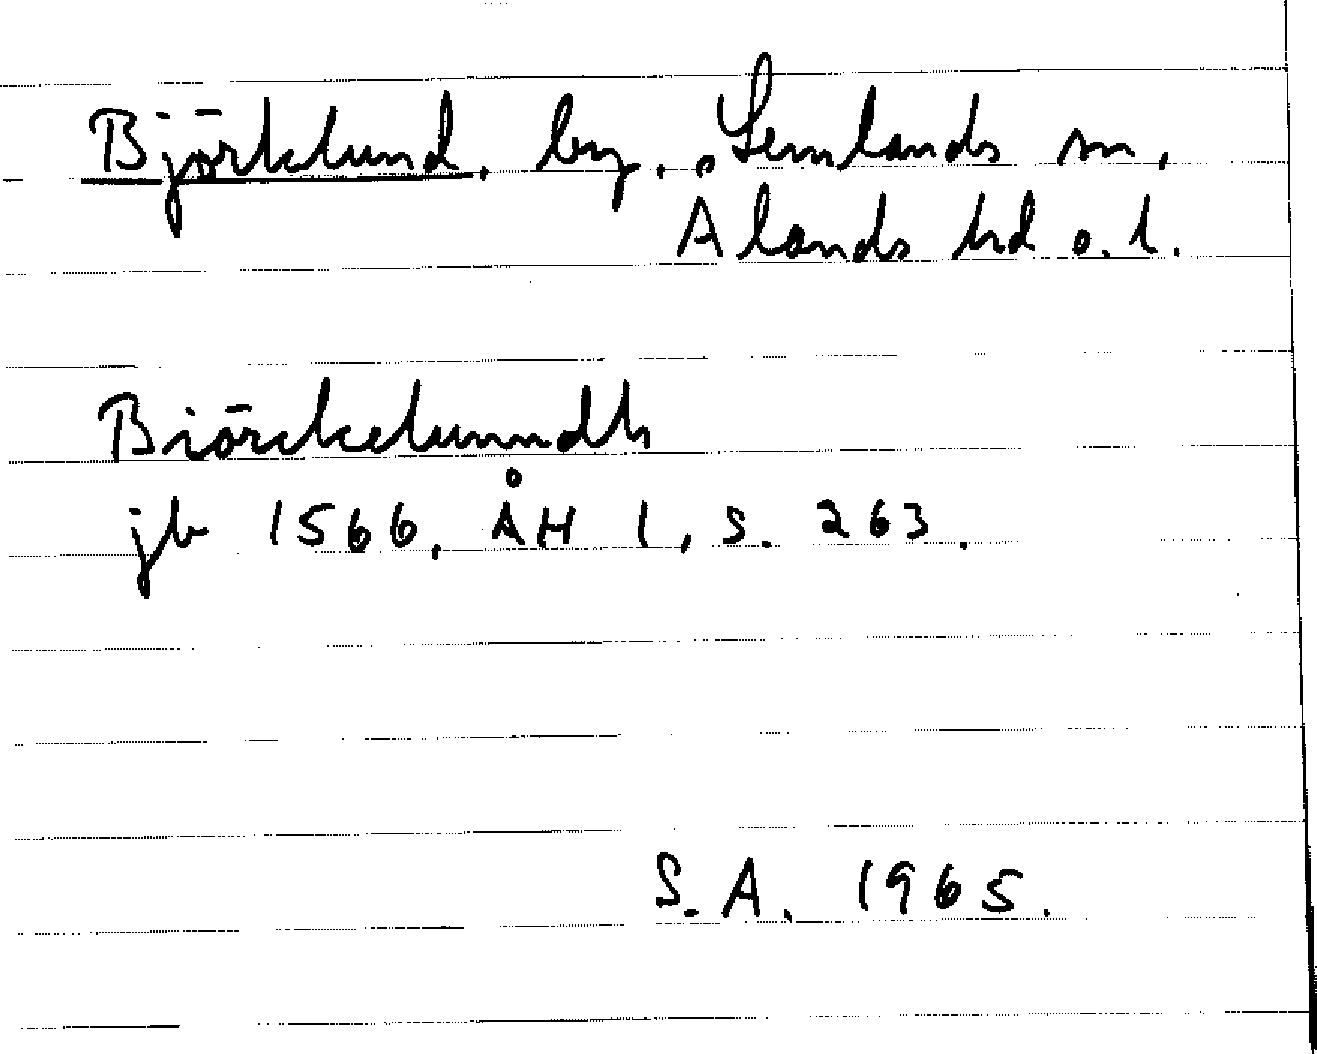 Björklund, by, Lemlands sn,
Ålands hd o. l.
Biörckelunndh
jb 1566, ÅH 1, s. 263.
S.A. 1965.